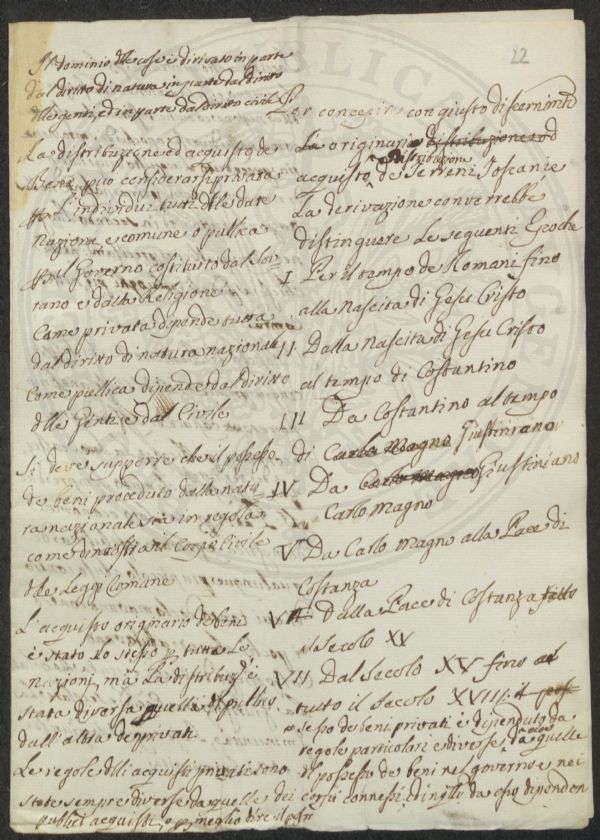 22
Il dominio dlle cose è dirivato in parte
dal diritto di natura in parte dal diritto
dlle genti, ed in parte da diritto civile
La distribuzione ed acquisto dei
Beni può considerarsi privata
L'individui tutti dlle date
Nazioni, e comune o publica
il Governo costituito dal Sov-
rano e dalla Religione
Come privata dipende tutta
dal diritto di natura nazionale
come publica dipende dal diritto
dlle Genti e dal Civile
Si deve supporre che il possesso
de beni proceduto dalla natu
ra nazionale sia in regola
come dimostra il Corpo Civile
dlle Leggi Comune
L'acquisto originario de beni
è stato lo stesso p tutte le
nazioni, ma la distribuz.e è
stata diversa quella di publico
dall'altra de privati
Le regole dlli acquisti privati sono
state sempre diverse da quelle dei
publici acquisti, o p meglio dire il poss
Per concepire con giusto discernimto
La originaria distribuzione od
distribuzione
acquisto de Terreni Toscani e
La derivazione converrebbe
distinguere le seguenti Epoche
I Per il tempo de Romani fino
alla Nascita di Gesu Cristo
II Dalla Nascita di Gesu Cristo
al tempo di Costantino
III Da Costantino al tempo
di Carlo Magno Giustiniano
IV Da Carlo Magno Giustiniano
Carlo Magno
V Da Carlo Magno alla Pace di
Costanza
VI Dalla Pace di Costanza fatto
il Secolo XV
VII Dal Secolo XV fino al
tutto il Secolo XVIII: il pos-
sesso de beni privati è dipenduto da
regole particolari e diverse da quelle
il possesso de beni nel governo e nei
corpi connessi, ed in gllo da esso dipendon